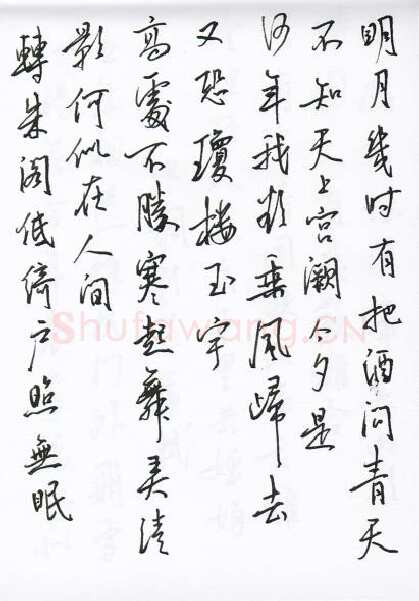 明月幾时有把酒问青天
不知天上宫阙今夕是
何年我欲乘风歸去
又恐瓊楼玉宇
高處不勝寒起舞弄清
影何似在人间
轉朱阁低绮户照無眠
Shufawang.CN